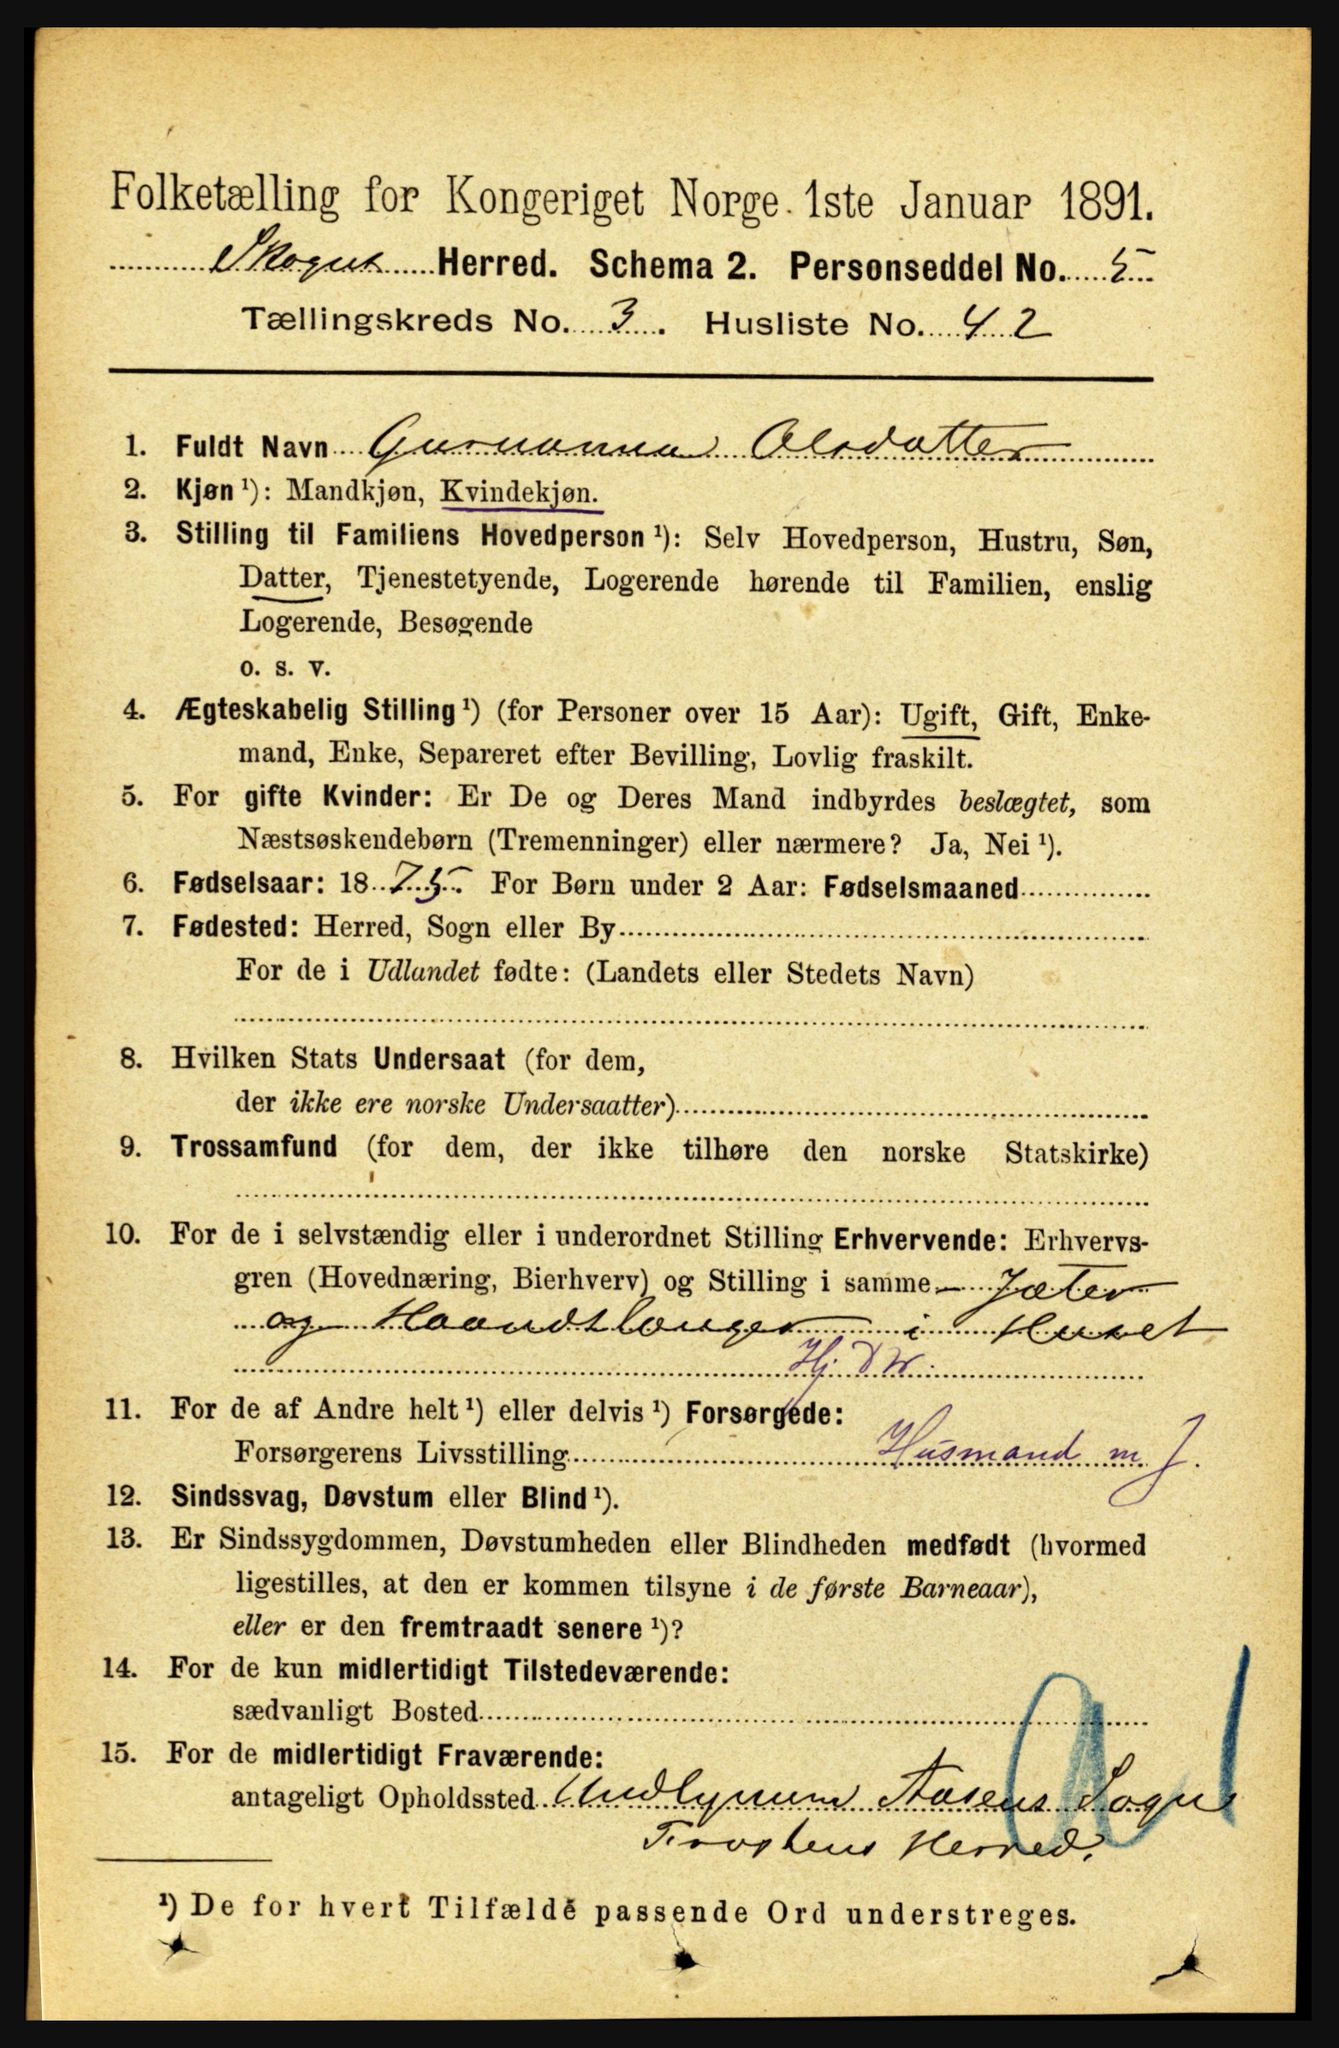 Folketælling for Kongeriget Norge 1ste Januar 1891.
Skogns Herred. Schema 2. Personseddel No. 5
Tællingskreds No. 3. Husliste No. 42
1. Fuldt Navn Gurnanna Olsdatter
2. Kjøn ¹): Mandkjøn, Kvindekjøn.
3. Stilling til Familiens Hovedperson ¹): Selv Hovedperson, Hustru, Søn,
Datter, Tjenestetyende, Logerende hørende til Familien, enslig
Logerende, Besøgende
o. s. v.
4. Ægteskabelig Stilling ¹) (for Personer over 15 Aar): Ugift, Gift, Enke-
mand, Enke, Separeret efter Bevilling, Lovlig fraskilt.
5. For gifte Kvinder: Er De og Deres Mand indbyrdes beslægtet, som
Næstsøskendebørn (Tremenninger) eller nærmere? Ja, Nei ¹).
6. Fødselsaar: 1875. For Børn under 2 Aar: Fødselsmaaned
7. Fødested: Herred, Sogn eller By
For de i Udlandet fødte: (Landets eller Stedets Navn)
8. Hvilken Stats Undersaat (for dem,
der ikke ere norske Undersaatter)
9. Trossamfund (for dem, der ikke tilhøre den norske Statskirke)
10. For de i selvstændig eller i underordnet Stilling Erhvervende: Erhvervs-
gren (Hovednæring, Bierhverv) og Stilling i samme Jæter
og Haandtlanger i Huset
11. For de af Andre helt ¹) eller delvis ¹) Forsørgede:
Forsørgerens Livsstilling Husmand m J.
12. Sindssvag, Døvstum eller Blind ¹).
13. Er Sindssygdommen, Døvstumheden eller Blindheden medfødt (hvormed
ligestilles, at den er kommen tilsyne i de første Barneaar),
eller er den fremtraadt senere ¹)?
14. For de kun midlertidigt Tilstedeværende:
sædvanligt Bosted
15. For de midlertidigt Fraværende:
antageligt Opholdssted Aasens Sogn
Frostens Herred.
¹) De for hvert Tilfælde passende Ord understreges.